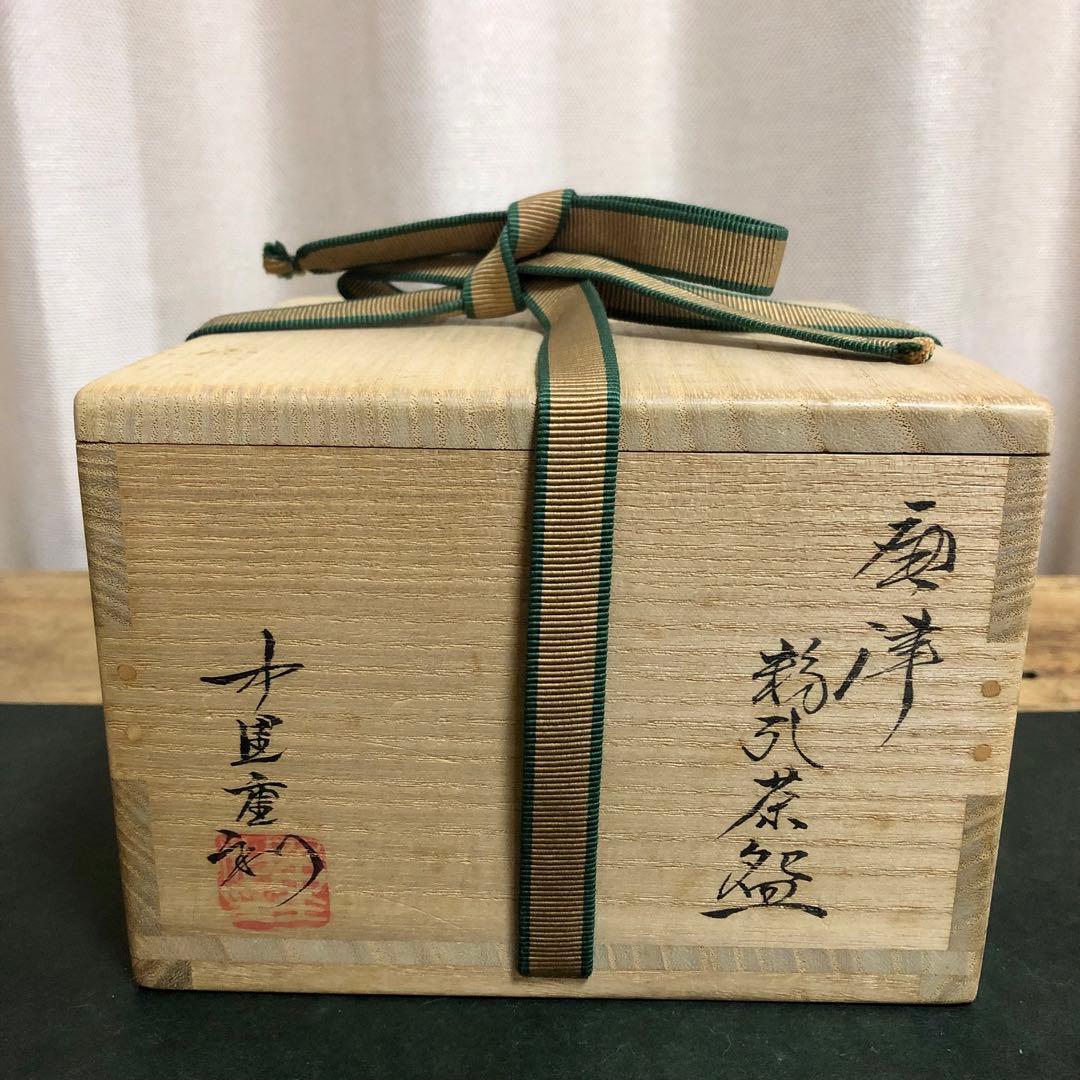 唐津
粉引茶盌
中里重利